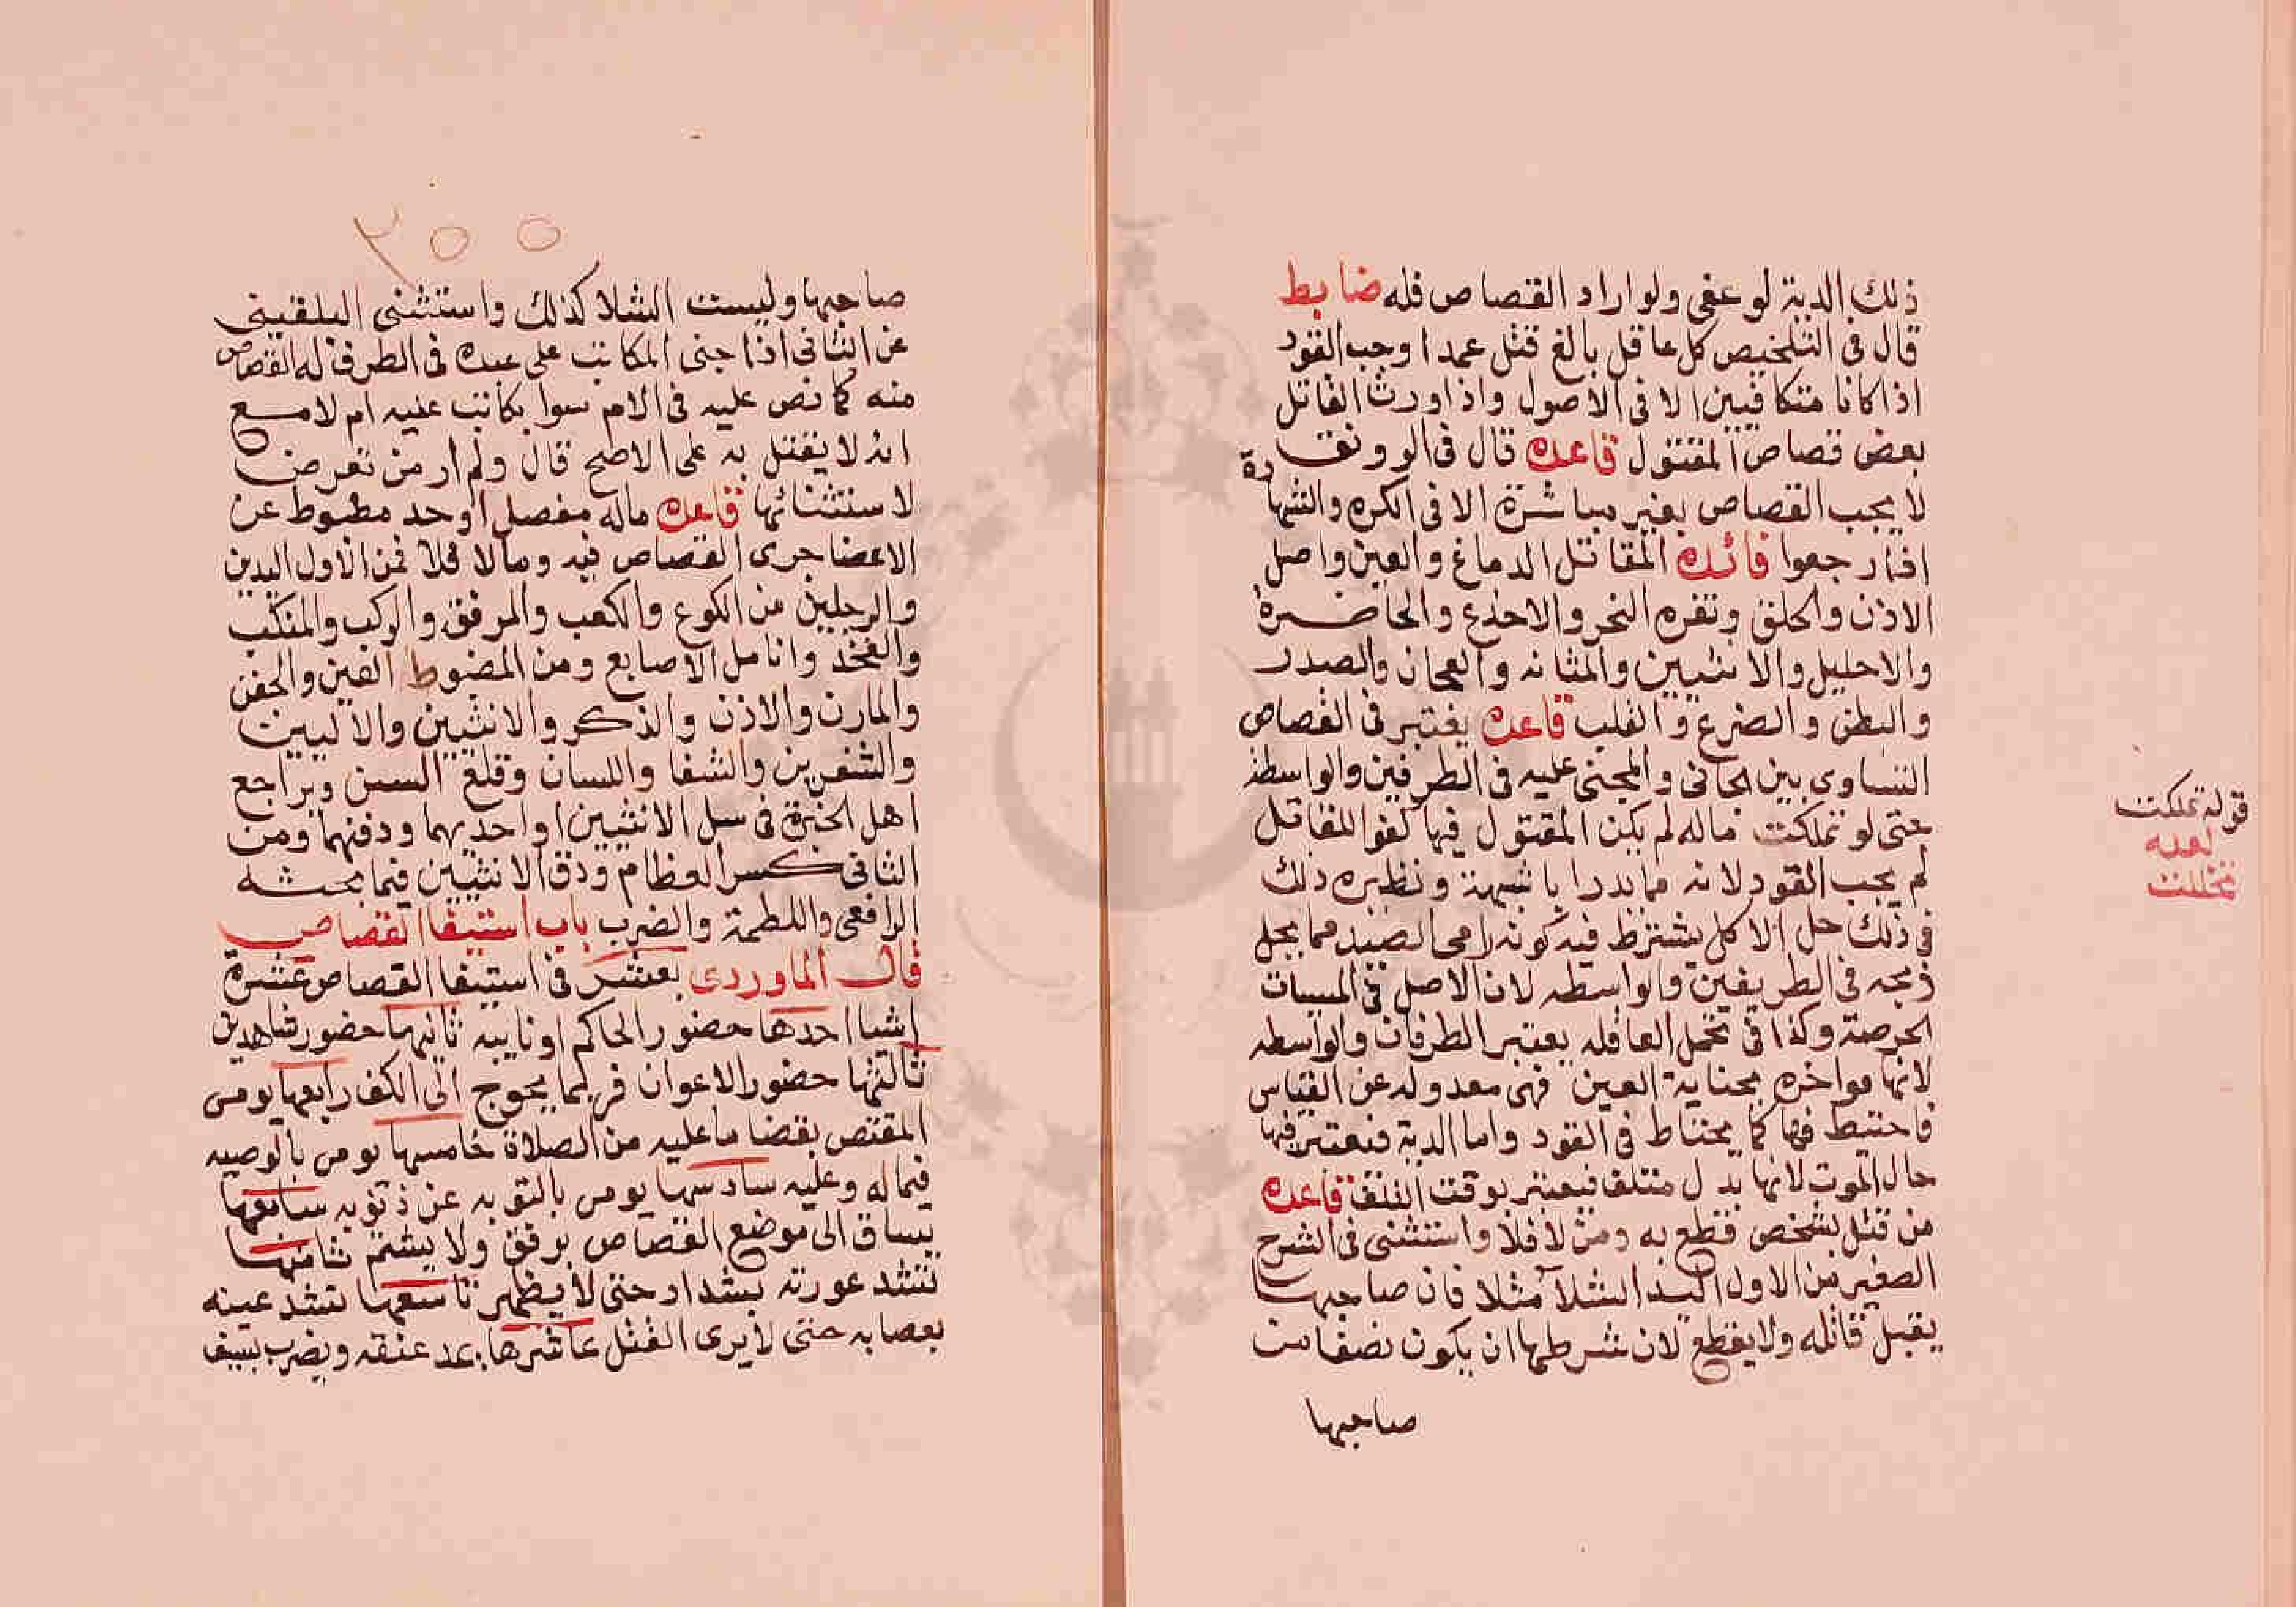 ذلك الدية لو عفى ولو اراد القصاص فله ضابط
قال فى التلخيص كل عاقل بالغ قتل عمدا وجب القود
اذا كانا متكافيين الا فى الاصول واذا ورث القاتل
بعض قصاص المقتول قاعدة قال فى الرونق
لا يجب القصاص بغير مباشرة الا فى الكره والشهادة
اذا رجعوا فائدة المقاتل الدماغ والعين واصل
الاذن والحلق وثغره النحر والاخدع والخاضرة
والاحليل والانثيين والمثانه والعجان والصدر
والبطن والضرع والقلب قاعدة يعتبر فى القصاص
التساوى بين الجانى والمجنى عليه فى الطرفين والواسطة
حتى لو تملكت ماله لم يكن المقتول فيها كفوا للقاتل
لم يجب القود لانه مما يدرا بالشبهة ونظيره ذلك
فى ذلك حل الاكل يشترط فيه كونه رامى الصيد مما يحل
ذبحه فى الطريفين والواسطه لان الاصل فى الميتات
الحرصة وكذا فى تحمل العاقله يعتبر الطرفان والواسطه
لانها مواخذه بجناية العين فهى معدوله عن القياس
فاحتيط فيها كما يحتاط فى القود واما الدية فيعتبر فيها
حال الموت لانها بدل متلف فيعتبر بوقت التلف قاعدة
من قتل بشخص قطع به ومن لا فلا واستثنى فى الشرح
الصغير من الاول اليد الشلا مثلا فان صاحبها
يقبل قاتله ولا يقطع لان شرطها ان يكون نصفا من
صاحبها
قوله تملكت
لعله
تخللت
٢٥٥
صاحبها وليست الشلا كذلك واستثنى البلقينى
عن الثانى اذا جنى المكاتب على عبده فى الطرف فله القصاص
منه كما نص عليه فى الام سوا يكاتب عليه ام لا مع
انه لا يقتل به على الاصح قال ولم ار من تعرض
لاستثنائها قاعدة ماله مفصل او حد مظبوط عن
الاعضا جرى القصاص فيه ومالا فلا فمن الاول اليدين
والرجلين من الكوع والكعب والمرفق والركب والمنكب
والفخذ وانامل الاصابع ومن المضبوط العين والجفن
والمارن والاذن والذكر والانثيين والاليين
والشفرين والشفا واللسان وقلع السن ويراجع
اهل الخبرة فى سل الانثيين او احديهما ودقهما ومن
الثانى كسر العظام ودق الانثيين فيما بحثه
الرافعى واللطمة والضرب باب استيفا القصاص
قال الماوردى يعتبر فى استيفا القصاص عشرة
اشيا احدها حضور الحاكم او نايبه ثانيها حضور شاهدين
ثالثها حضور الاعوان فربما يحوج الى الكف رابعها يومى
المقتص بقضا ما عليه من الصلاة خامسها يومى بالوصيه
فيما له وعليه سادسها يومى بالتوبه عن ذنوبه سابعها
يساق الى موضع القصاص برفق ولا يشتم ثامنها
تشد عورته بشداد حتى لا يظهر تاسعها تشد عينه
بعصابه حتى لا يرى القتل عاشرها يمد عنقه ويضرب بسيف